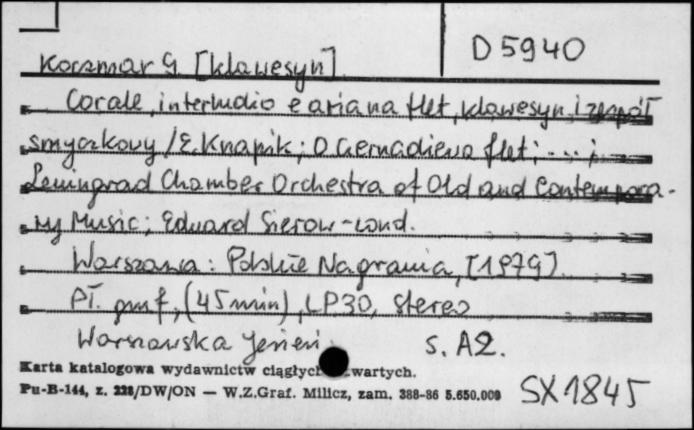 D5940
Koczmar G. [klawesyn]
Corale, interludio e aria na flet, klawesyn i zespół
smyczkowy / E. Knapik; O. Czernadiewa flet; ... ;
Leningrad Chamber Orchestra of Old and Contempora-
ry Music; Eduard Sierow - cond.
Warszawa: Polskie Nagrania, [1979]
Pł. gmf, (45 min), LP30, stereo
Warszawska Jesień s. A2.
Karta katalogowa wydawnictw ciągłych
Pu-B-144, z. 228/DW/ON — W.Z.Graf. Milicz, zam. 388-86 5.650.000
SX1845